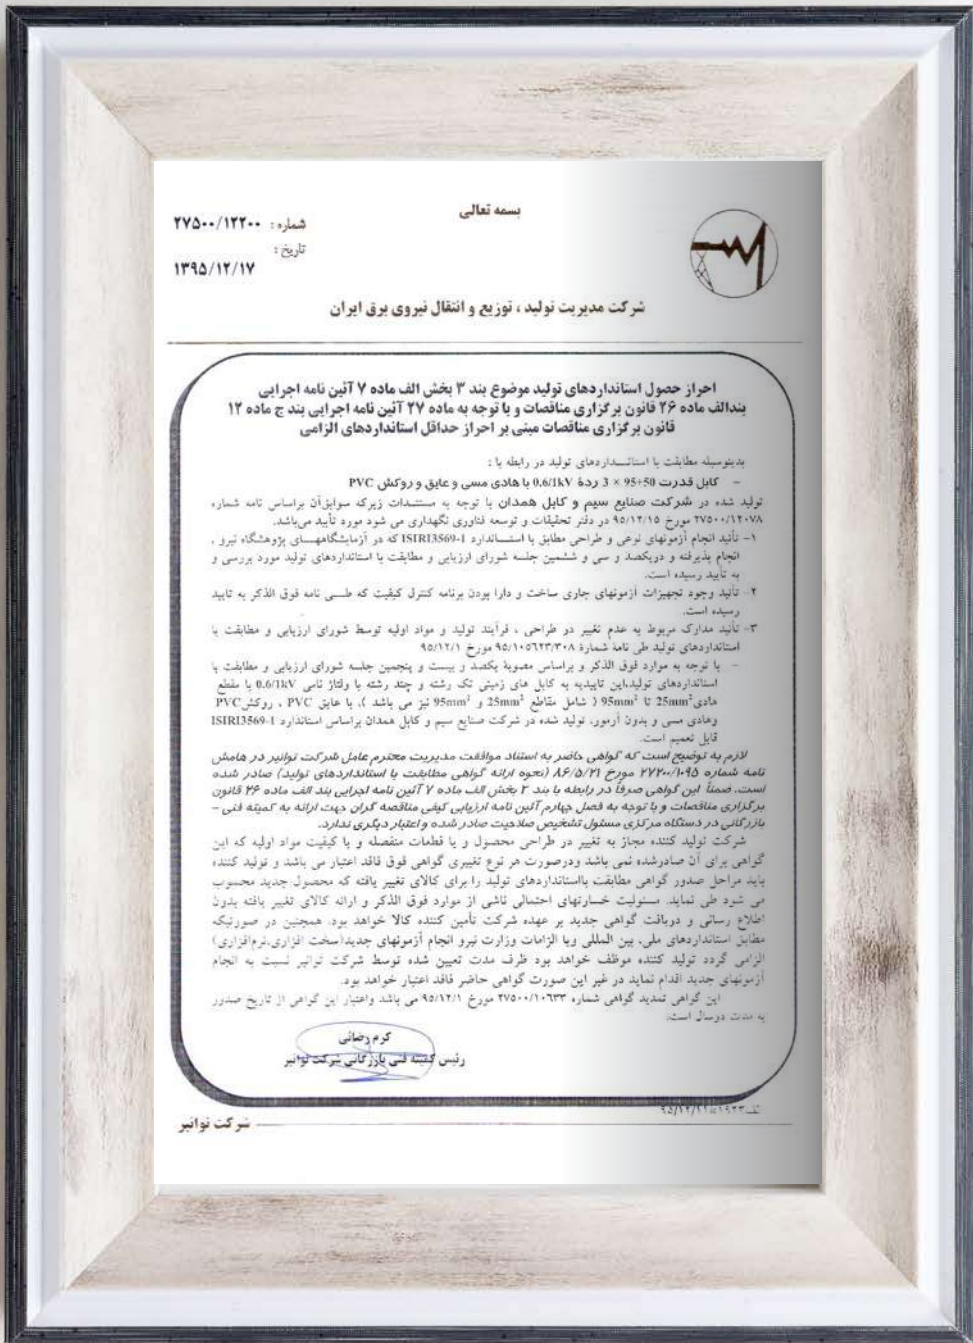 بسمه تعالی
شماره : ۲۷۵۰۰/۱۲۲۰۰
تاریخ :
۱۳۹۵/۱۲/۱۷
شرکت مدیریت تولید ، توزیع و انتقال نیروی برق ایران
احراز حصول استانداردهای تولید موضوع بند ۳ بخش الف ماده ۷ آئین نامه اجرایی
بندالف ماده ۲۶ قانون برگزاری مناقصات و با توجه به ماده ۲۷ آئین نامه اجرایی بند ج ماده ۱۲
قانون برگزاری مناقصات مبنی بر احراز حداقل استانداردهای الزامی
بدینوسیله مطابقت با استانداردهای تولید در رابطه با :
– کابل قدرت 50+95 × 3 ردۀ 0.6/1kV با هادی مسی و عایق و روکش PVC
تولید شده در شرکت صنایع سیم و کابل همدان با توجه به مستندات زیرکه سوابق‌آن براساس نامه شماره
۲۷۵۰۰/۱۲۰۷۸ مورخ ۹۵/۱۲/۱۵ در دفتر تحقیقات و توسعه فناوری نگهداری می شود مورد تأیید می‌باشد.
۱- تأئید انجام آزمونهای نوعی و طراحی مطابق با استاندارد ISIRI3569-1 که در آزمایشگاههای پژوهشگاه نیرو ،
انجام پذیرفته و دریکصد و سی و ششمین جلسه شورای ارزیابی و مطابقت با استانداردهای تولید مورد بررسی و
به تأیید رسیده است.
۲- تأئید وجود تجهیزات آزمونهای جاری ساخت و دارا بودن برنامه کنترل کیفیت که طی نامه فوق الذکر به تایید
رسیده است.
۳- تأئید مدارک مربوط به عدم تغییر در طراحی ، فرآیند تولید و مواد اولیه توسط شورای ارزیابی و مطابقت با
استانداردهای تولید طی نامۀ شمارۀ ۹۵/۱۰۵۶۲۳/۳۰۸ مورخ ۹۵/۱۲/۱
– با توجه به موارد فوق الذکر و براساس مصوبۀ یکصد و بیست و پنجمین جلسه شورای ارزیابی و مطابقت با
استانداردهای تولید،این تاییدیه به کابل های زمینی تک رشته و چند رشته با ولتاژ نامی 0.6/1kV با مقطع
هادی 25mm² تا 95mm² ( شامل مقاطع 25mm² و 95mm² نیز می باشد )، با عایق PVC ، روکش PVC
وهادی مسی و بدون آرمور، تولید شده در شرکت صنایع سیم و کابل همدان براساس استاندارد ISIRI3569-1
قابل تعمیم است.
لازم به توضیح است که گواهی حاضر به استناد موافقت مدیریت محترم عامل شرکت توانیر در هامش
نامه شماره ۲۷۲۰۰/۱۰۹۵ مورخ ۸۶/۵/۲۱ (نحوه ارائه گواهی مطابقت با استانداردهای تولید) صادر شده
است. ضمناً این گواهی صرفاً در رابطه با بند ۳ بخش الف ماده ۷ آئین نامه اجرایی بند الف ماده ۲۶ قانون
برگزاری مناقصات و با توجه به فصل چهارم آئین نامه ارزیابی کیفی مناقصه گران جهت ارائه به کمیته فنی –
بازرگانی در دستگاه مرکزی مسئول تشخیص صلاحیت صادر شده و اعتبار دیگری ندارد.
شرکت تولید کننده مجاز به تغییر در طراحی محصول و یا قطعات منفصله و یا کیفیت مواد اولیه که این
گواهی برای آن صادرشده نمی باشد ودرصورت هر نوع تغییری گواهی فوق فاقد اعتبار می باشد و تولید کننده
باید مراحل صدور گواهی مطابقت بااستانداردهای تولید را برای کالای تغییر یافته که محصول جدید محسوب
می شود طی نماید. مسئولیت خسارتهای احتمالی ناشی از موارد فوق الذکر و ارائه کالای تغییر یافته بدون
اطلاع رسانی و دریافت گواهی جدید بر عهده شرکت تأمین کننده کالا خواهد بود. همچنین در صورتیکه
مطابق استانداردهای ملی، بین المللی ویا الزامات وزارت نیرو انجام آزمونهای جدید(سخت افزاری،نرم‌افزاری)
الزامی گردد تولید کننده موظف خواهد بود ظرف مدت تعیین شده توسط شرکت توانیر نسبت به انجام
آزمونهای جدید اقدام نماید در غیر این صورت گواهی حاضر فاقد اعتبار خواهد بود.
این گواهی تمدید گواهی شماره ۲۷۵۰۰/۱۰۶۳۳ مورخ ۹۵/۱۲/۱ می باشد واعتبار این گواهی از تاریخ صدور
به مدت دوسال است.
کرم رضائی
رئیس کمیته فنی بازرگانی شرکت توانیر
شرکت توانیر